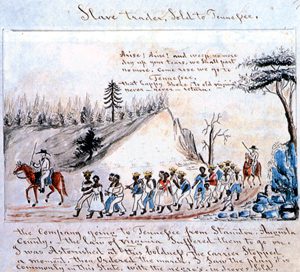 Slave trader, Sold to Tennessee.
Arise! Arise! and weep no more
dry up your tears, we shall part
no more. Come rose we go to
Tennessee.
that happy Shore. to old virginia
never — never — return.
the Company going to Tennessee from Staunton. Augusta
County, — the law of Virginia Suffered them to go on.
I was Astonished at this boldness. the carrier Stopped
a moment. then Ordered the march. I Saw the play it is
commonly in this state. with the negro's in droves